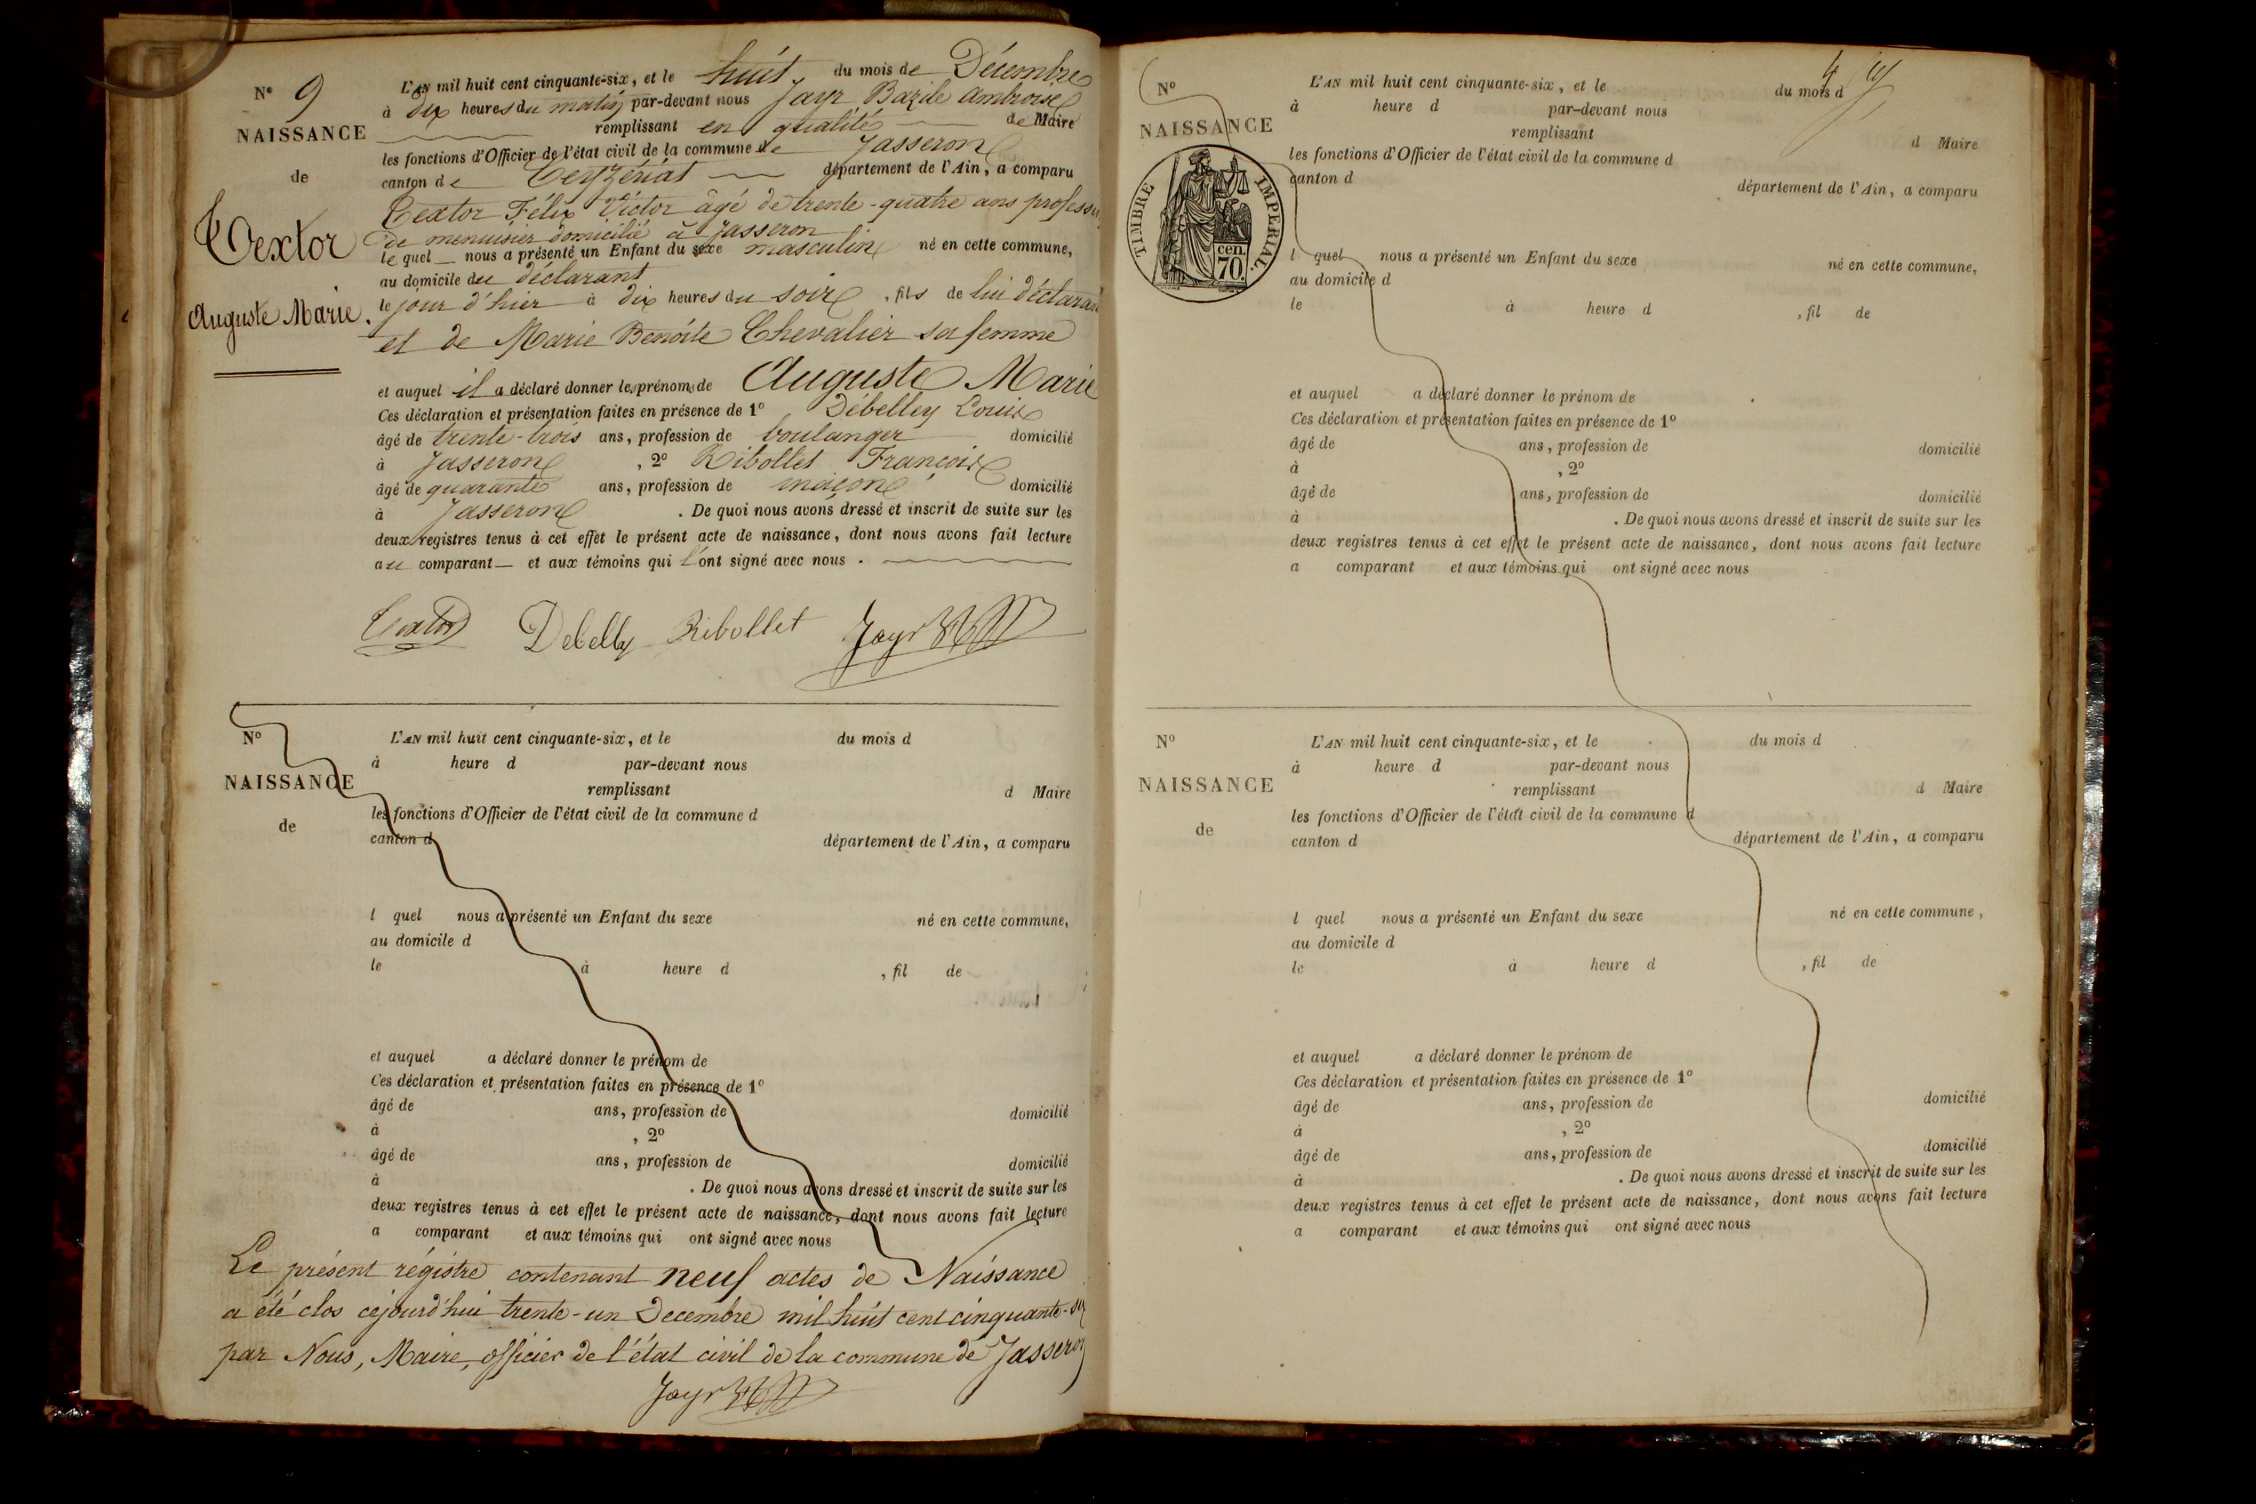 N° 9
NAISSANCE
de
Textor
Auguste Marie.
L'AN mil huit cent cinquante-six, et le huit du mois de Décembre
à dix heures du matin par-devant nous Jayr Bazile Ambroise
remplissant en qualité de Maire
les fonctions d'Officier de l'état civil de la commune de Jasseron
canton de Ceyzériat département de l'Ain, a comparu
Textor Félix Victor âgé de trente-quatre ans profession
de menuisier domicilié à Jasseron
le quel nous a présenté un Enfant du sexe masculin né en cette commune,
au domicile du déclarant
le jour d'hier à dix heures du soir, fils de lui déclarant
et de Marie Benoite Chevalier sa femme
et auquel il a déclaré donner les prénoms de Auguste Marie
Ces déclaration et présentation faites en présence de 1° Débelley Louis
âgé de trente-trois ans, profession de boulanger domicilié
à Jasseron, 2° Ribollet François
âgé de quarante ans, profession de maçon domicilié
à Jasseron. De quoi nous avons dressé et inscrit de suite sur les
deux registres tenus à cet effet le présent acte de naissance, dont nous avons fait lecture
au comparant et aux témoins qui l'ont signé avec nous.
Textor Debelly Ribollet Jayr
N°
NAISSANCE
de
L'AN mil huit cent cinquante-six, et le du mois d
à heure d par-devant nous
remplissant d Maire
les fonctions d'Officier de l'état civil de la commune d
canton d département de l'Ain, a comparu
l quel nous a présenté un Enfant du sexe né en cette commune,
au domicile d
le à heure d , fil de
et auquel a déclaré donner le prénom de
Ces déclaration et présentation faites en présence de 1°
âgé de ans, profession de domicilié
à , 2°
âgé de ans, profession de domicilié
à . De quoi nous avons dressé et inscrit de suite sur les
deux registres tenus à cet effet le présent acte de naissance, dont nous avons fait lecture
a comparant et aux témoins qui ont signé avec nous
Le présent régistre contenant neuf actes de Naissance
a été clos cejourd'hui trente-un Decembre mil huit cent cinquante-six
par Nous, Maire, officier de l'état civil de la commune de Jasseron
Jayr
N°
NAISSANCE
TIMBRE IMPERIAL.
cen.
70.
L'AN mil huit cent cinquante-six, et le du mois d
à heure d par-devant nous
remplissant d Maire
les fonctions d'Officier de l'état civil de la commune d
canton d département de l'Ain, a comparu
l quel nous a présenté un Enfant du sexe né en cette commune,
au domicile d
le à heure d , fil de
et auquel a déclaré donner le prénom de
Ces déclaration et présentation faites en présence de 1°
âgé de ans, profession de domicilié
à , 2°
âgé de ans, profession de domicilié
à . De quoi nous avons dressé et inscrit de suite sur les
deux registres tenus à cet effet le présent acte de naissance, dont nous avons fait lecture
a comparant et aux témoins qui ont signé avec nous
N°
NAISSANCE
de
L'AN mil huit cent cinquante-six, et le du mois d
à heure d par-devant nous
remplissant d Maire
les fonctions d'Officier de l'état civil de la commune d
canton d département de l'Ain, a comparu
l quel nous a présenté un Enfant du sexe né en cette commune,
au domicile d
le à heure d , fil de
et auquel a déclaré donner le prénom de
Ces déclaration et présentation faites en présence de 1°
âgé de ans, profession de domicilié
à , 2°
âgé de ans, profession de domicilié
à . De quoi nous avons dressé et inscrit de suite sur les
deux registres tenus à cet effet le présent acte de naissance, dont nous avons fait lecture
a comparant et aux témoins qui ont signé avec nous